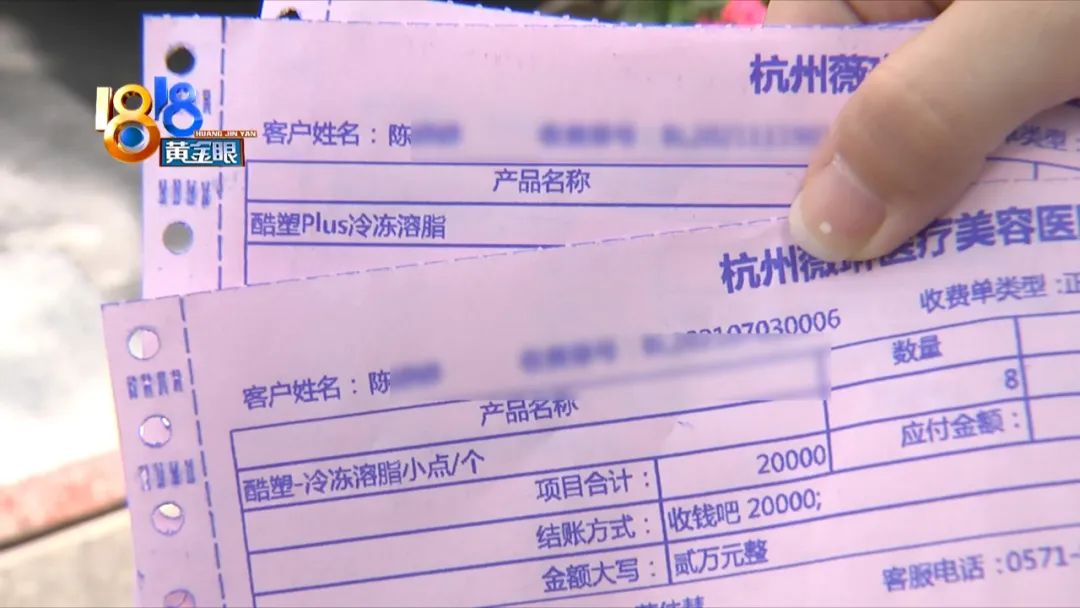 1818
HUANG JIN YAN
黄金眼
杭州薇
客户姓名：陈
类型：
产品名称
酷塑Plus冷冻溶脂
杭州薇琳医疗美容医
收费单类型：正
202107030006
客户姓名：陈
产品名称
数量
酷塑-冷冻溶脂小点/个
8
项目合计：
20000
应付金额：
结账方式：
收钱吧 20000;
金额大写：
贰万元整
客服电话：0571-